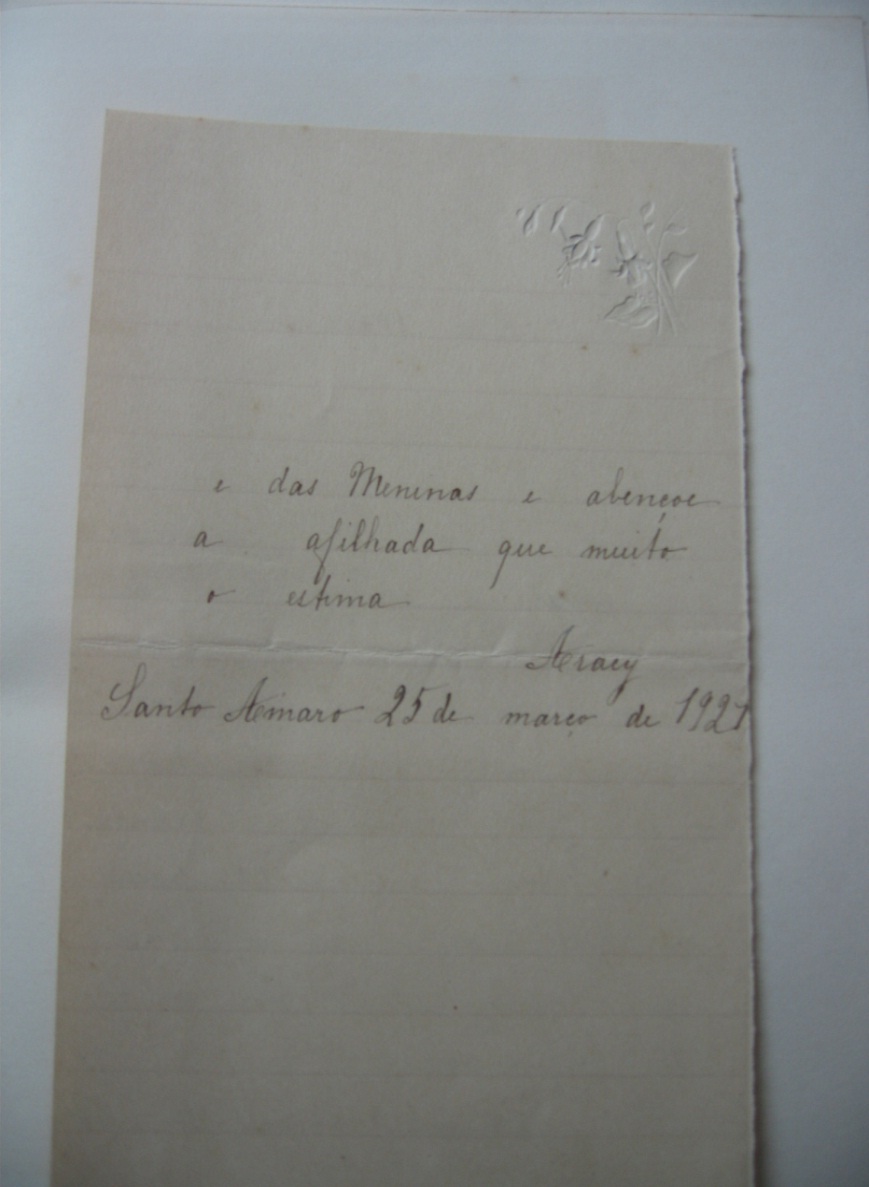 e das Meninas e abençoe
a afilhada que muito
o estima
Aracy
Santo Amaro 25 de março de 1921